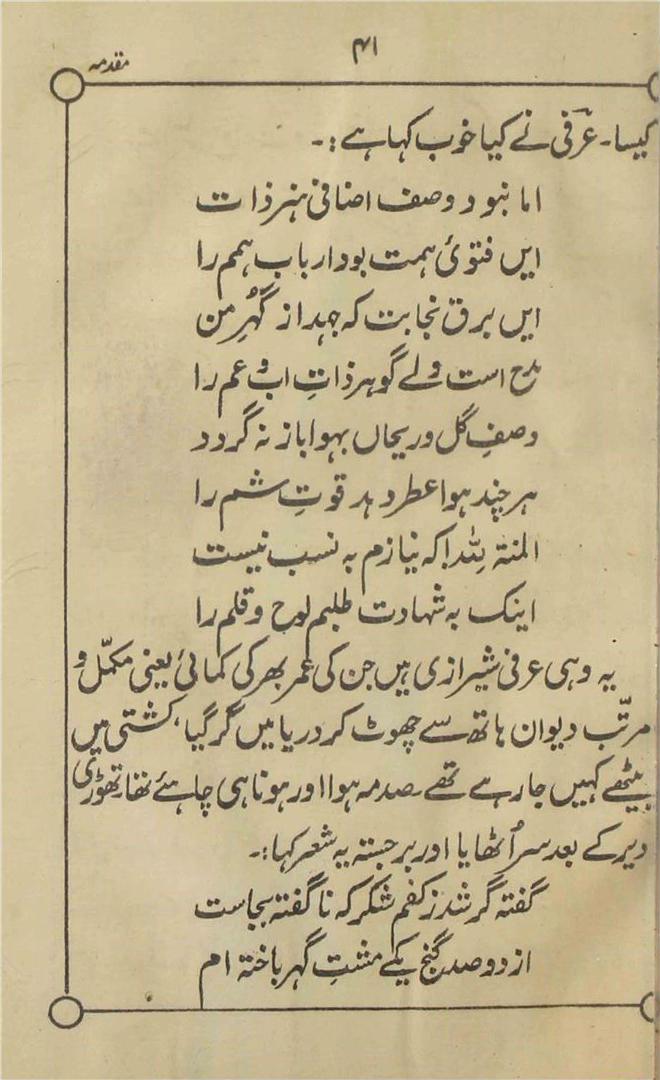 ۴۱
مقدمہ
کیسا۔ عرفی نے کیا خوب کہا ہے:۔
اما نبود وصف اضافی ہنر ذات
ایں فتویٔ ہمت بود ارباب ہمم را
ایں برق نجابت کہ جہد از گُہرِ من
مدح است ولے گوہر ذاتِ اب و عم را
وصفِ گل و ریحاں بہوا باز نہ گردد
ہر چند ہوا عطر دہد قوتِ شم را
المنۃ للہ! کہ نیازم بہ نسب نیست
اینک بہ شہادت طلبم لوح و قلم را
یہ وہی عرفی شیرازی ہیں جن کی عمر بھر کی کمائی یعنی مکمّل و
مرتّب دیوان ہاتھ سے چھوٹ کر دریا میں گر گیا، کشتی میں
بیٹھے کہیں جا رہے تھے۔ صدمہ ہوا اور ہونا ہی چاہئے تھا، تھوڑی
دیر کے بعد سر اُٹھایا اور برجستہ یہ شعر کہا:۔
گفتہ گر شد ز کفم شکر کہ نا گفتہ بجاست
از دو صد گنج یکے مشتِ گہر باختہ ام